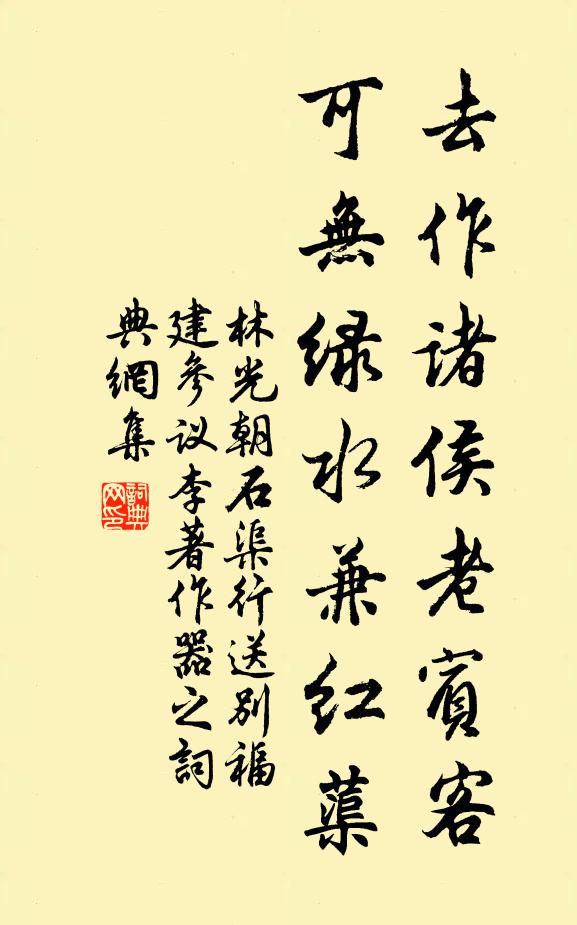 去作诸侯老賓客
可無绿水兼红蕖
林光朝石渠行送别福
建参议李著作器之詞
典網集
詞典网印